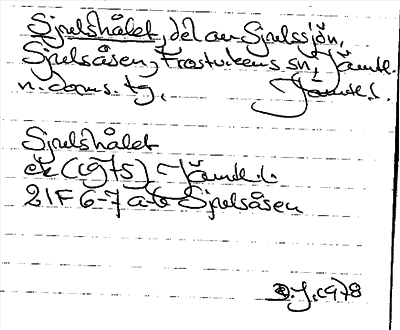 Sjulshålet, del av Sjulssjön,
Sjulsåsen, Frostvikens sn, Jämtl.
n. doms. tg. Jämtl. l.
Sjulshålet
ek (1975) Jämtl. l.
21F 6-7 a-b Sjulsåsen
J. 1978